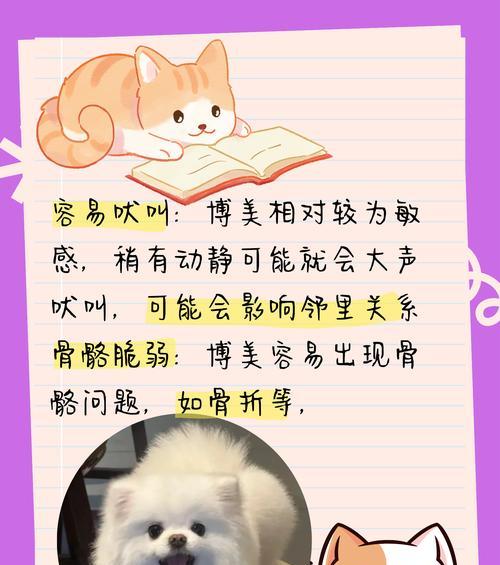 容易吠叫：博美相对较为敏
感，稍有动静可能就会大声
吠叫，可能会影响邻里关系
骨骼脆弱：博美容易出现骨
骼问题，如骨折等，